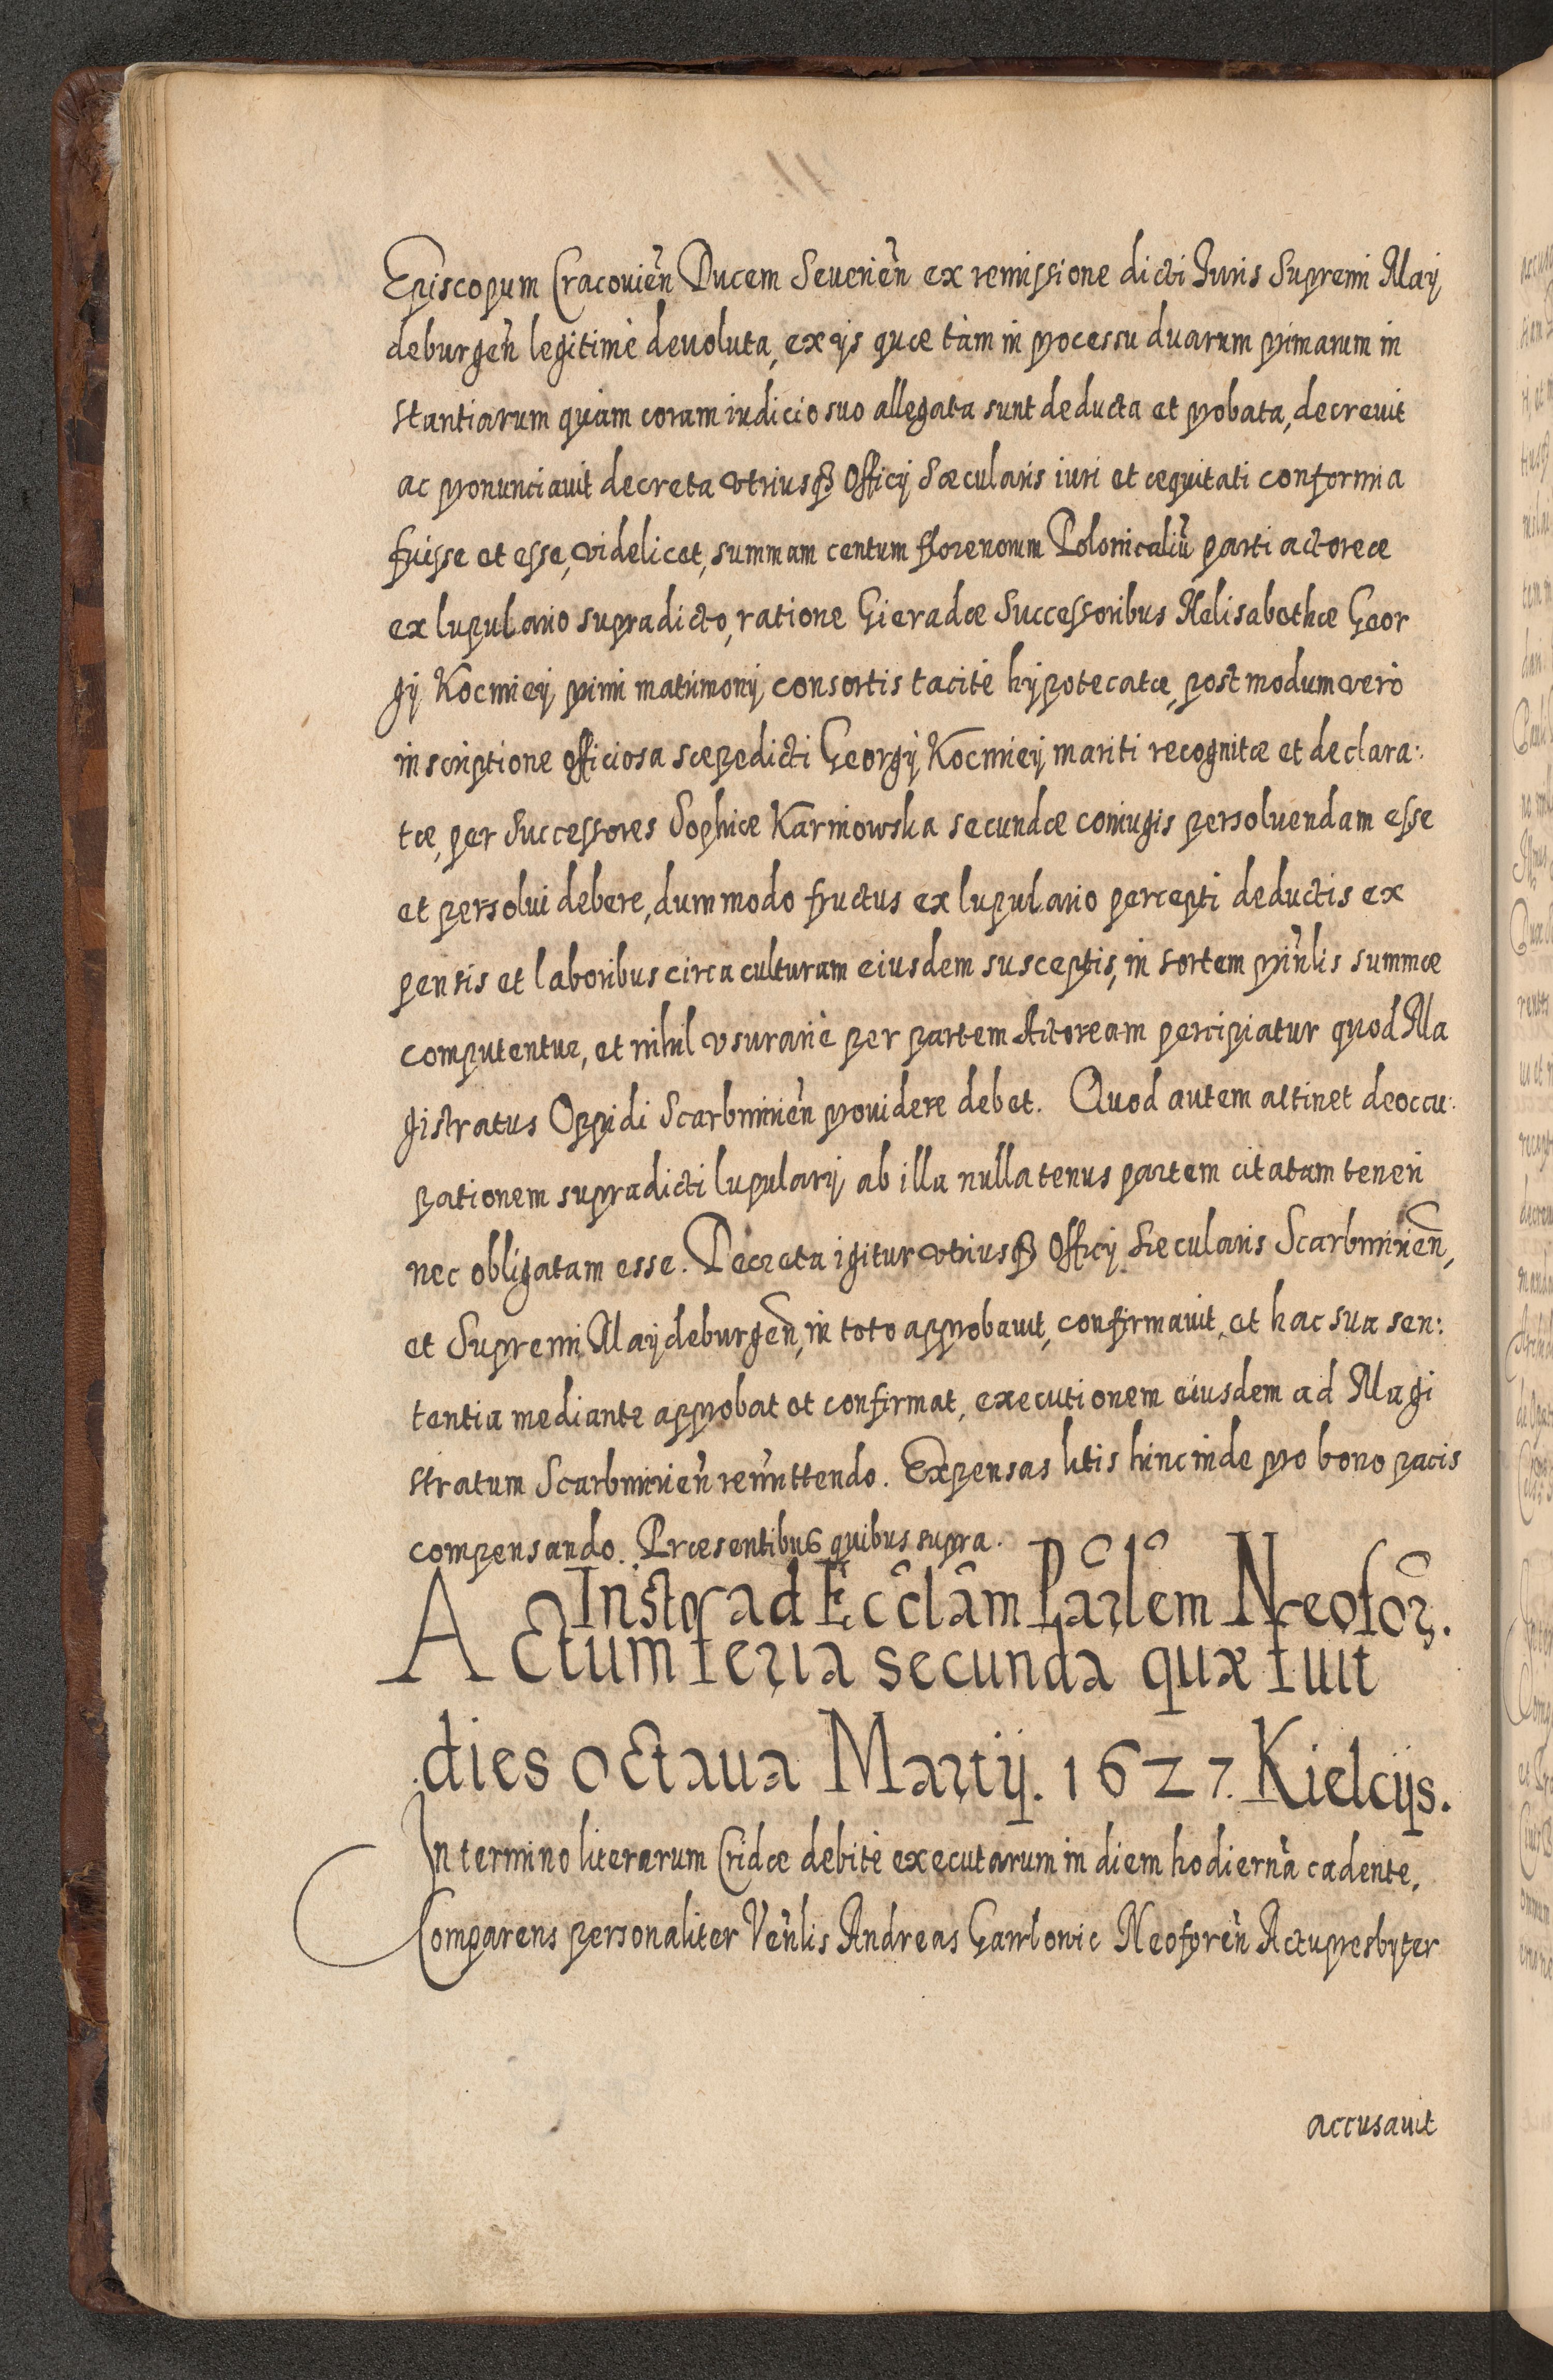 Episcopum Cracouien̄ Ducem Seuerien̄ ex remissione dicti Iuris Supremi May
deburgen̄ legitimè deuoluta, ex ijs quæ tàm in processu duarum primarum in
stantiarum quàm coram iudicio suo allegata sunt deducta et probata, decreuit
ac pronunciauit decreta vtriusq₃ Officij Sæcularis iuri et æquitati conformia
fuisse et esse, videlicet, summam centum florenorum Polonicaliū parti actoreæ
ex lupulario supradicto, ratione Gieradæ Successoribus Helisabethæ Geor
gij Kocmiey primi matrimonij consortis tacitè hypotecatæ, postmodum verò
inscriptione officiosa sæpedicti Georgij Kocmiey mariti recognitæ et declara:
tæ, per Successores Sophiæ Karniowska secundæ coniugis persoluendam esse
et persolui debere, dummodo fructus ex lupulario percepti deductis ex
pensis et laboribus circa culturam eiusdem susceptis, in sortem prin̄lis summæ
computentur, et nihil vsurariè per partem Actoream percipiatur quod Ma
gistratus Oppidi Scarbimirien̄ prouidere debet. Quod autem attinet deoccu:
pationem supradicti lupularij, ab illa nullatenus partem citatam teneri
nec obligatam esse. Decreta igitur vtriusq₃ Officij Sæcularis Scarbimirien̄,
et Supremi Maydeburgen̄, in toto approbauit, confirmauit, et hac sua sen:
tentia mediante approbat et confirmat, executionem eiusdem ad Magi
stratum Scarbimirien̄ remittendo. Expensas litis hincinde pro bono pacis
compensando. Præsentibus quibus supra.
Insto ad Eccl̄am Parl̄em Neofor̄.
Actum feria secunda quæ fuit
dies octaua Martij. 1627. Kielcijs.
In termino literarum Cridæ debitè executarum in diem hodiernā cadente,
Comparens personaliter Ven̄lis Andreas Gawlonic Neoforen̄ Actupresbyter
accusauit